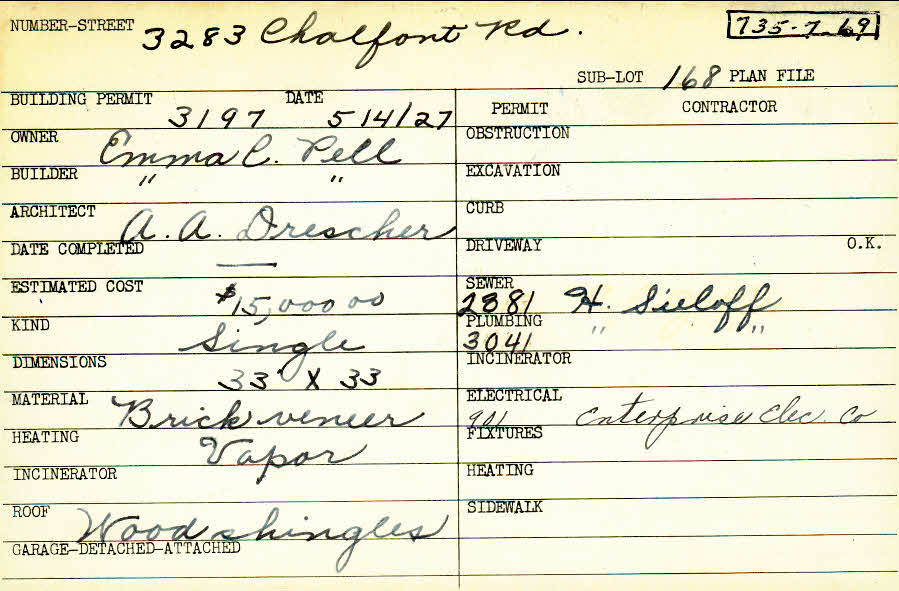 NUMBER-STREET 3283 Chalfont Rd. 735-7-69
SUB-LOT 168 PLAN FILE
BUILDING PERMIT 3197 DATE 5/14/27
PERMIT CONTRACTOR
OWNER Emma C. Pell
OBSTRUCTION
BUILDER " "
EXCAVATION
ARCHITECT A. A. Drescher
CURB
DATE COMPLETED —
DRIVEWAY O.K.
ESTIMATED COST $15,000 00
SEWER 2881 H. Sieloff
KIND Single
PLUMBING 3041 " "
DIMENSIONS 33' X 33
INCINERATOR
MATERIAL Brick veneer
ELECTRICAL 901 Enterprise Elec. Co
HEATING Vapor
FIXTURES
INCINERATOR
HEATING
ROOF Wood shingles
SIDEWALK
GARAGE-DETACHED-ATTACHED